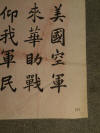 美國空軍
來華助戰
仰我軍民